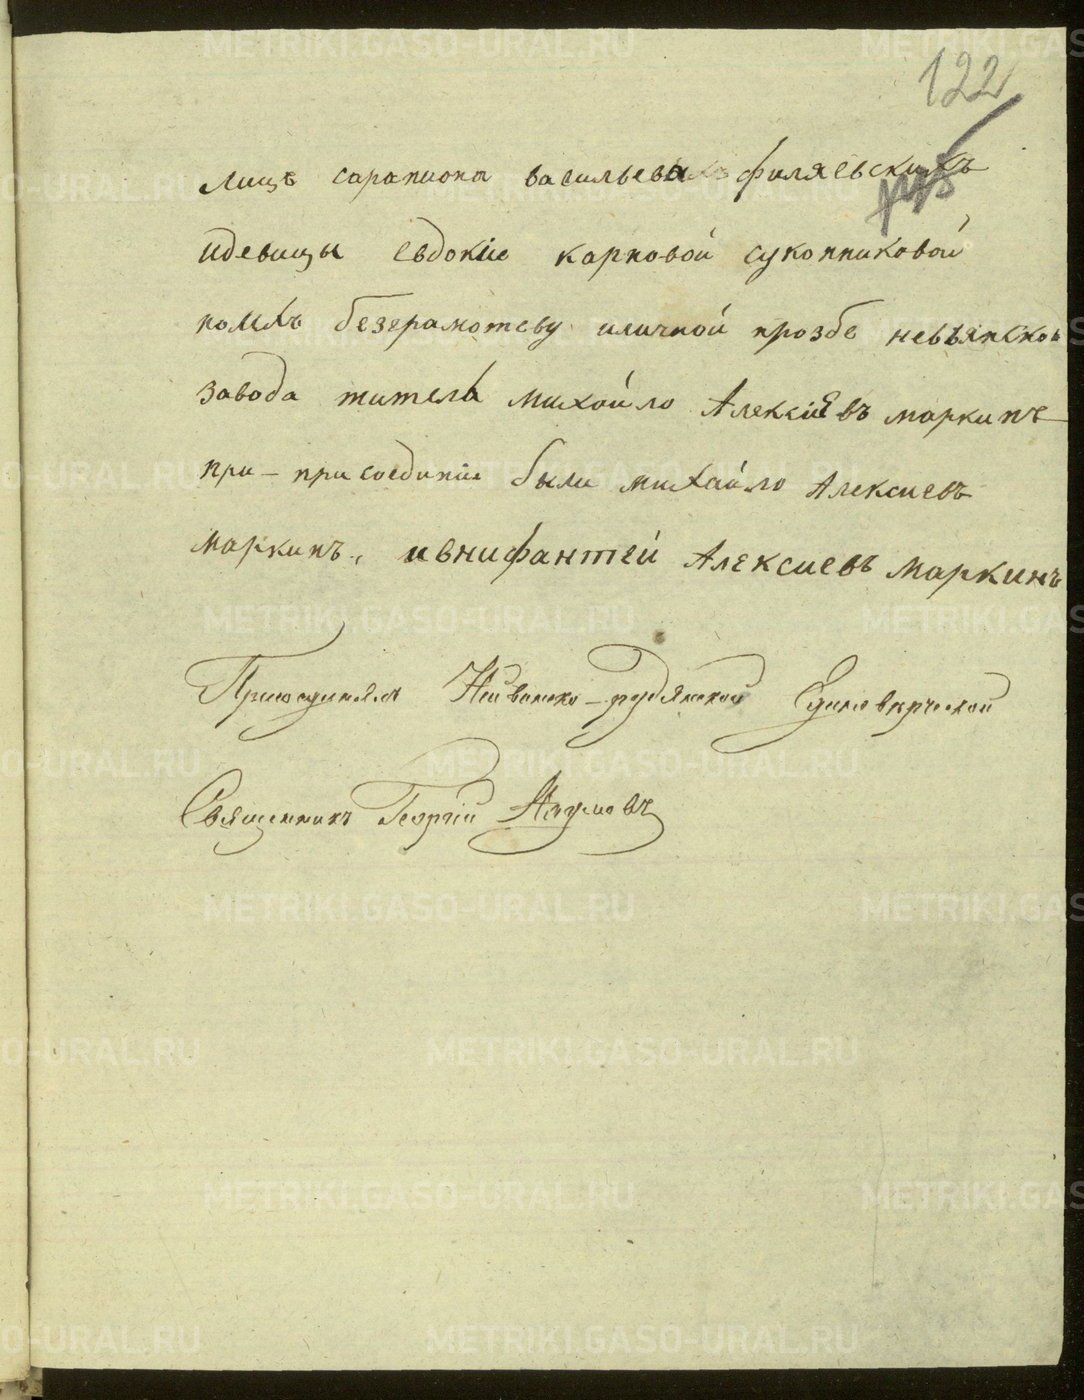 122
лицъ сарапиона васильева филяевскихъ
идевицы евдокіи карповой суконниковой
поихъ безграмотству иличной прозбе невьянског
завода житель михайло Алексіевъ маркинъ
при – присоединіи были михайло Алексиевъ
маркинъ, иенифантей Алексиевъ маркинъ
Присоединялъ Нейвинско-рудянской Единоверческой
Священникъ Георгій
METRIKI.GASO-URAL.RU